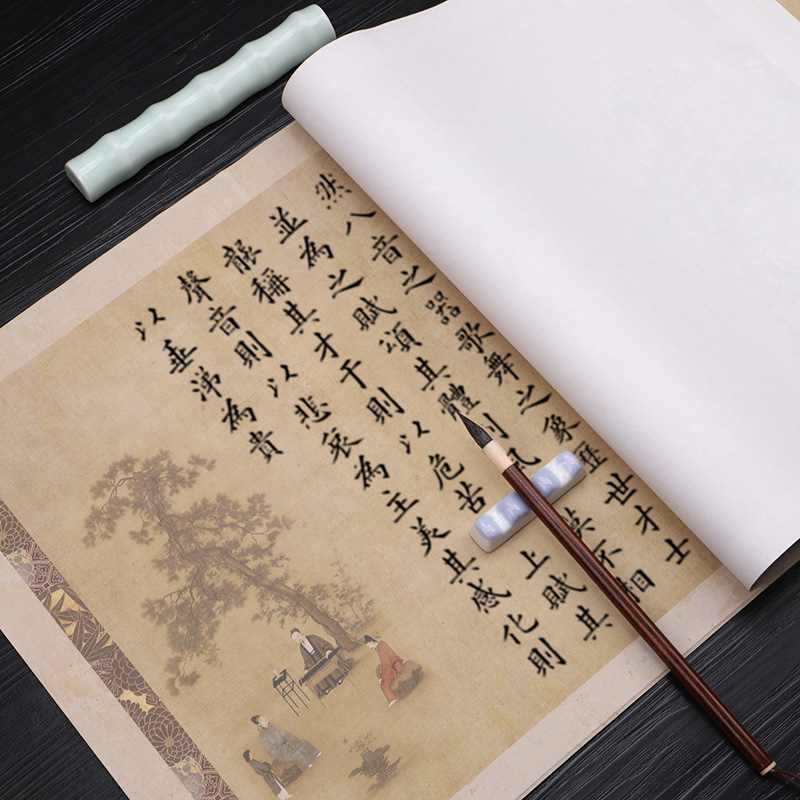 然八音之器歌舞之象歷世才士
並為之賦頌其體風莫不相
襲稱其才干則以危苦上賦其
聲音則以悲哀為主美其感化則
以垂涕為貴